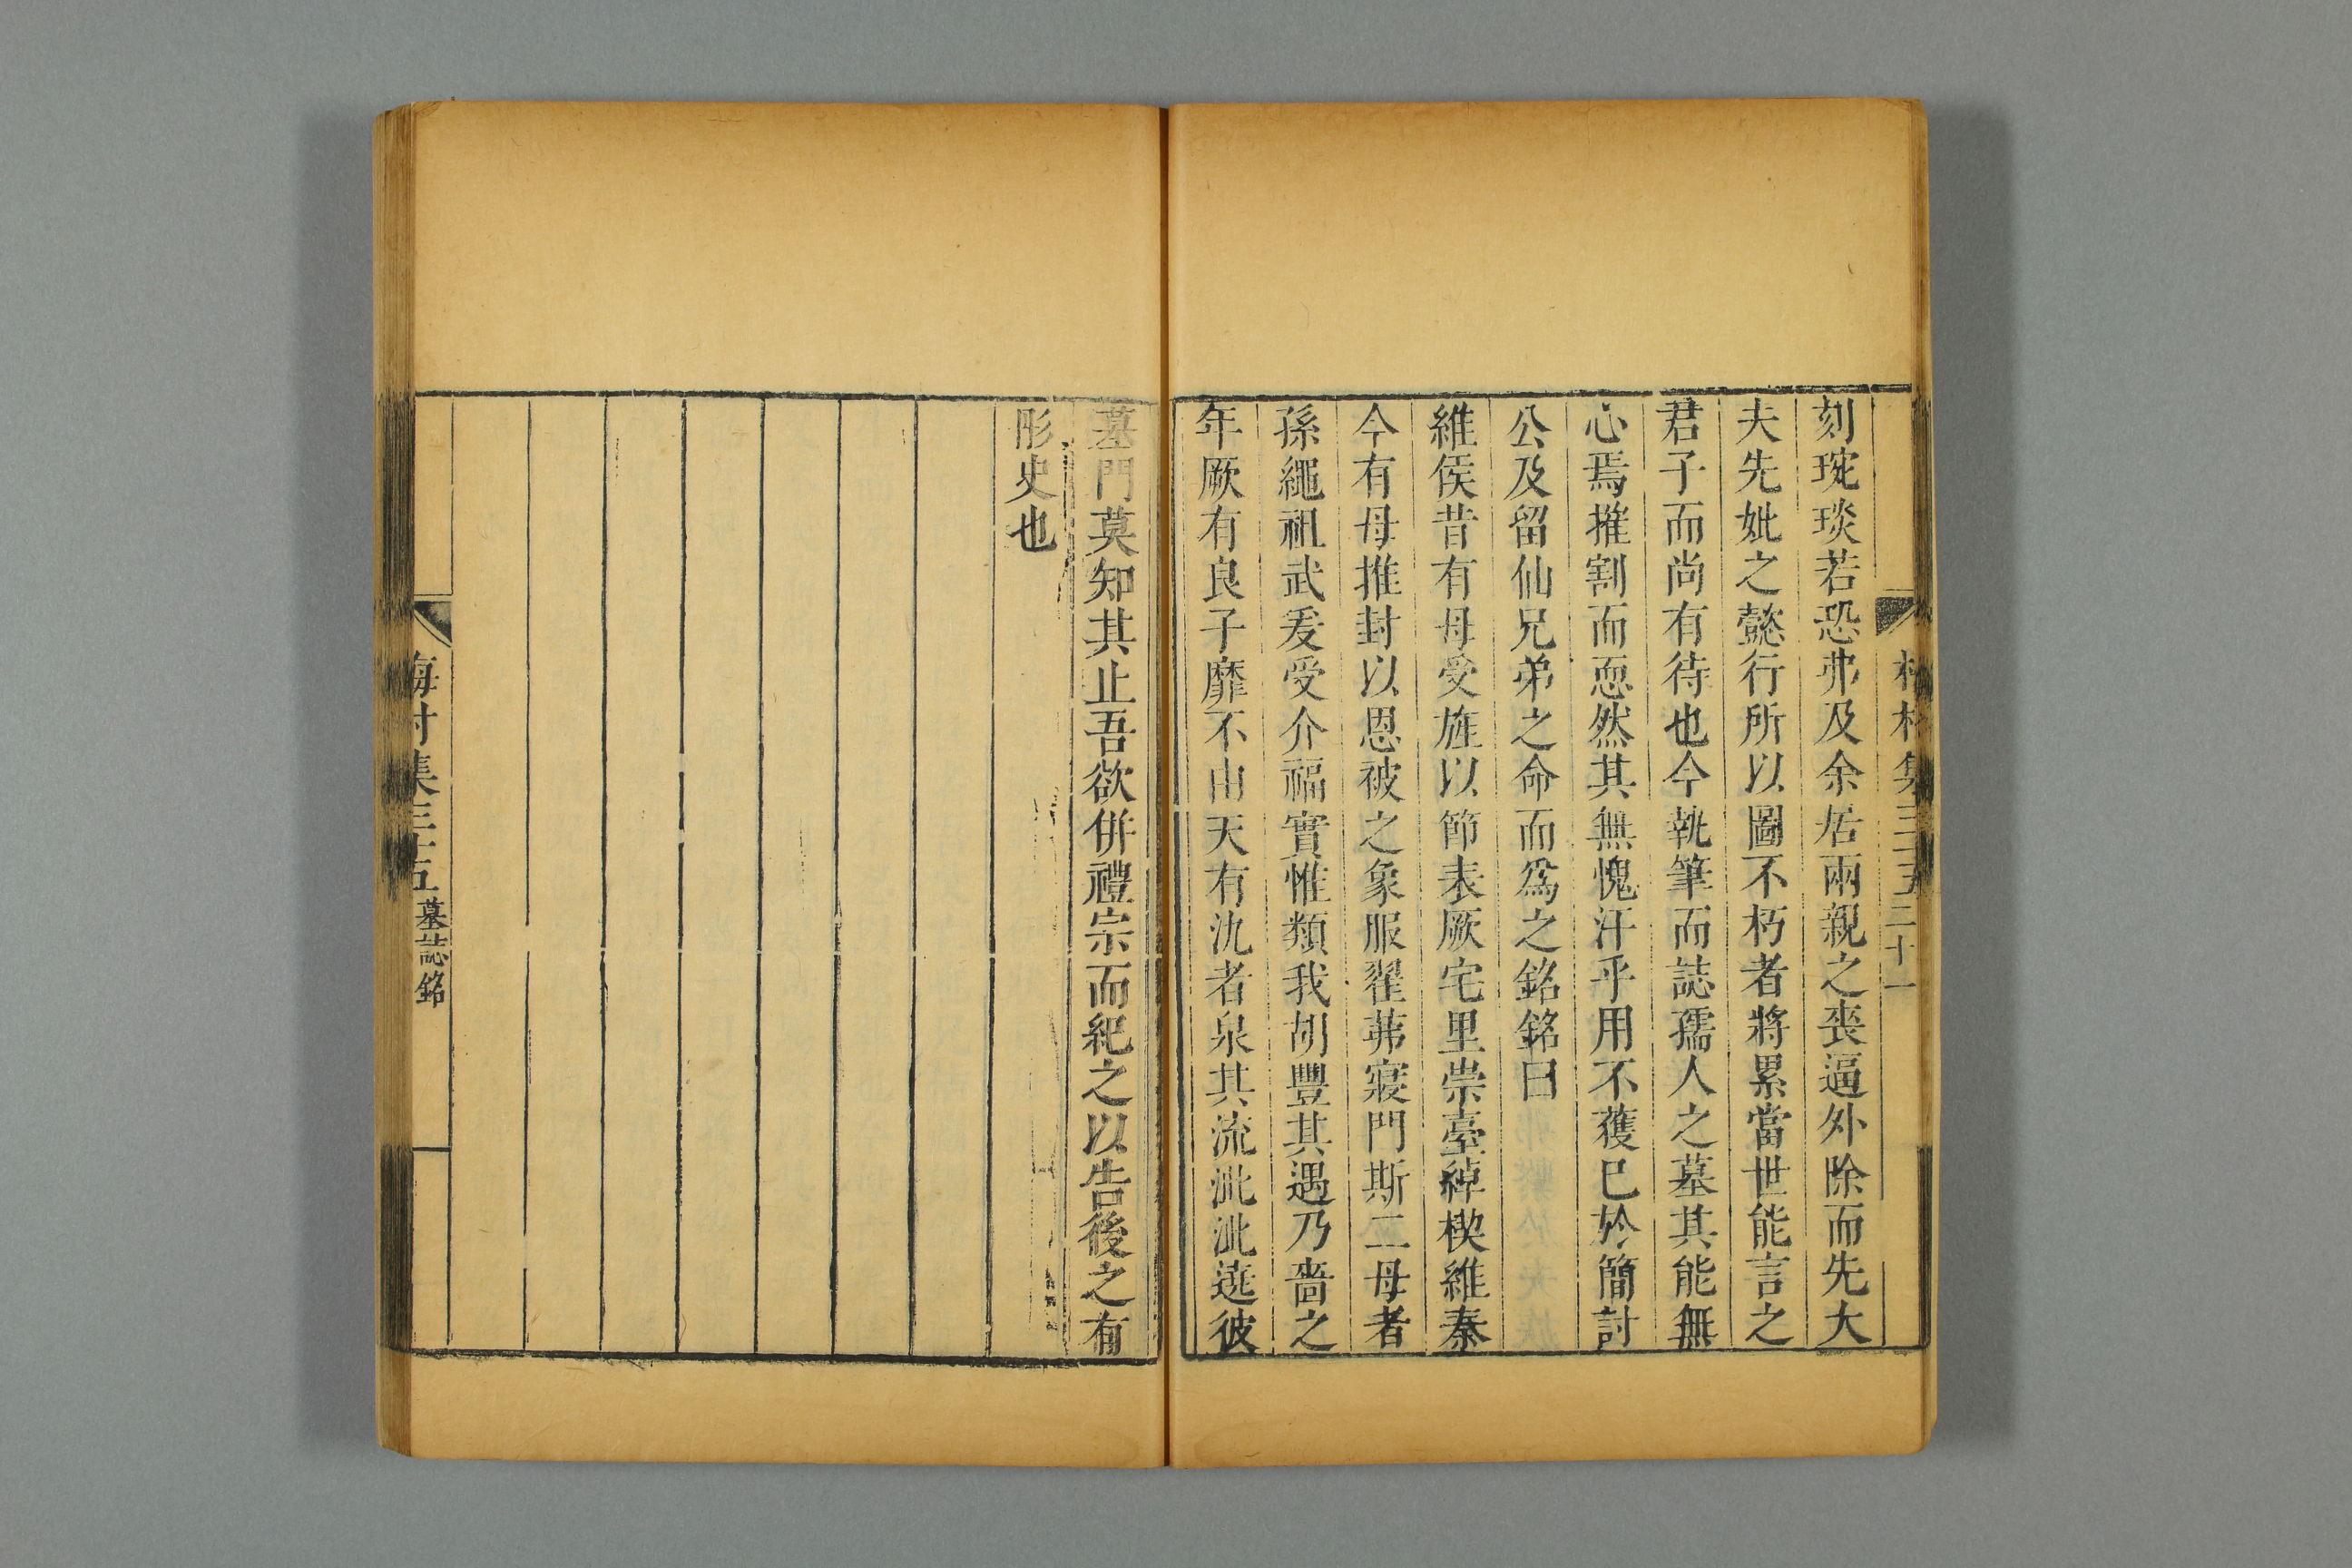 刻琬琰若恐弗及余居兩親之喪逼外除而先大
夫先妣之懿行所以圖不朽者將累當世能言之
君子而尚有待也今執筆而誌孺人之墓其能無
心焉摧割而恧然其無愧汗乎用不獲已於簡討
公及留仙兄弟之命而爲之銘銘曰
維侯昔有母受旌以節表厥宅里崇臺綽楔維秦
今有母推封以恩被之象服翟茀寢門斯二母者
孫繩祖武爰受介福實惟類我胡豐其遇乃嗇之
年厥有良子靡不由天有氿者泉其流泚泚遶彼
墓門莫知其止吾欲併禮宗而紀之以告後之有
彤史也
三十一
梅村集三十五 墓誌銘